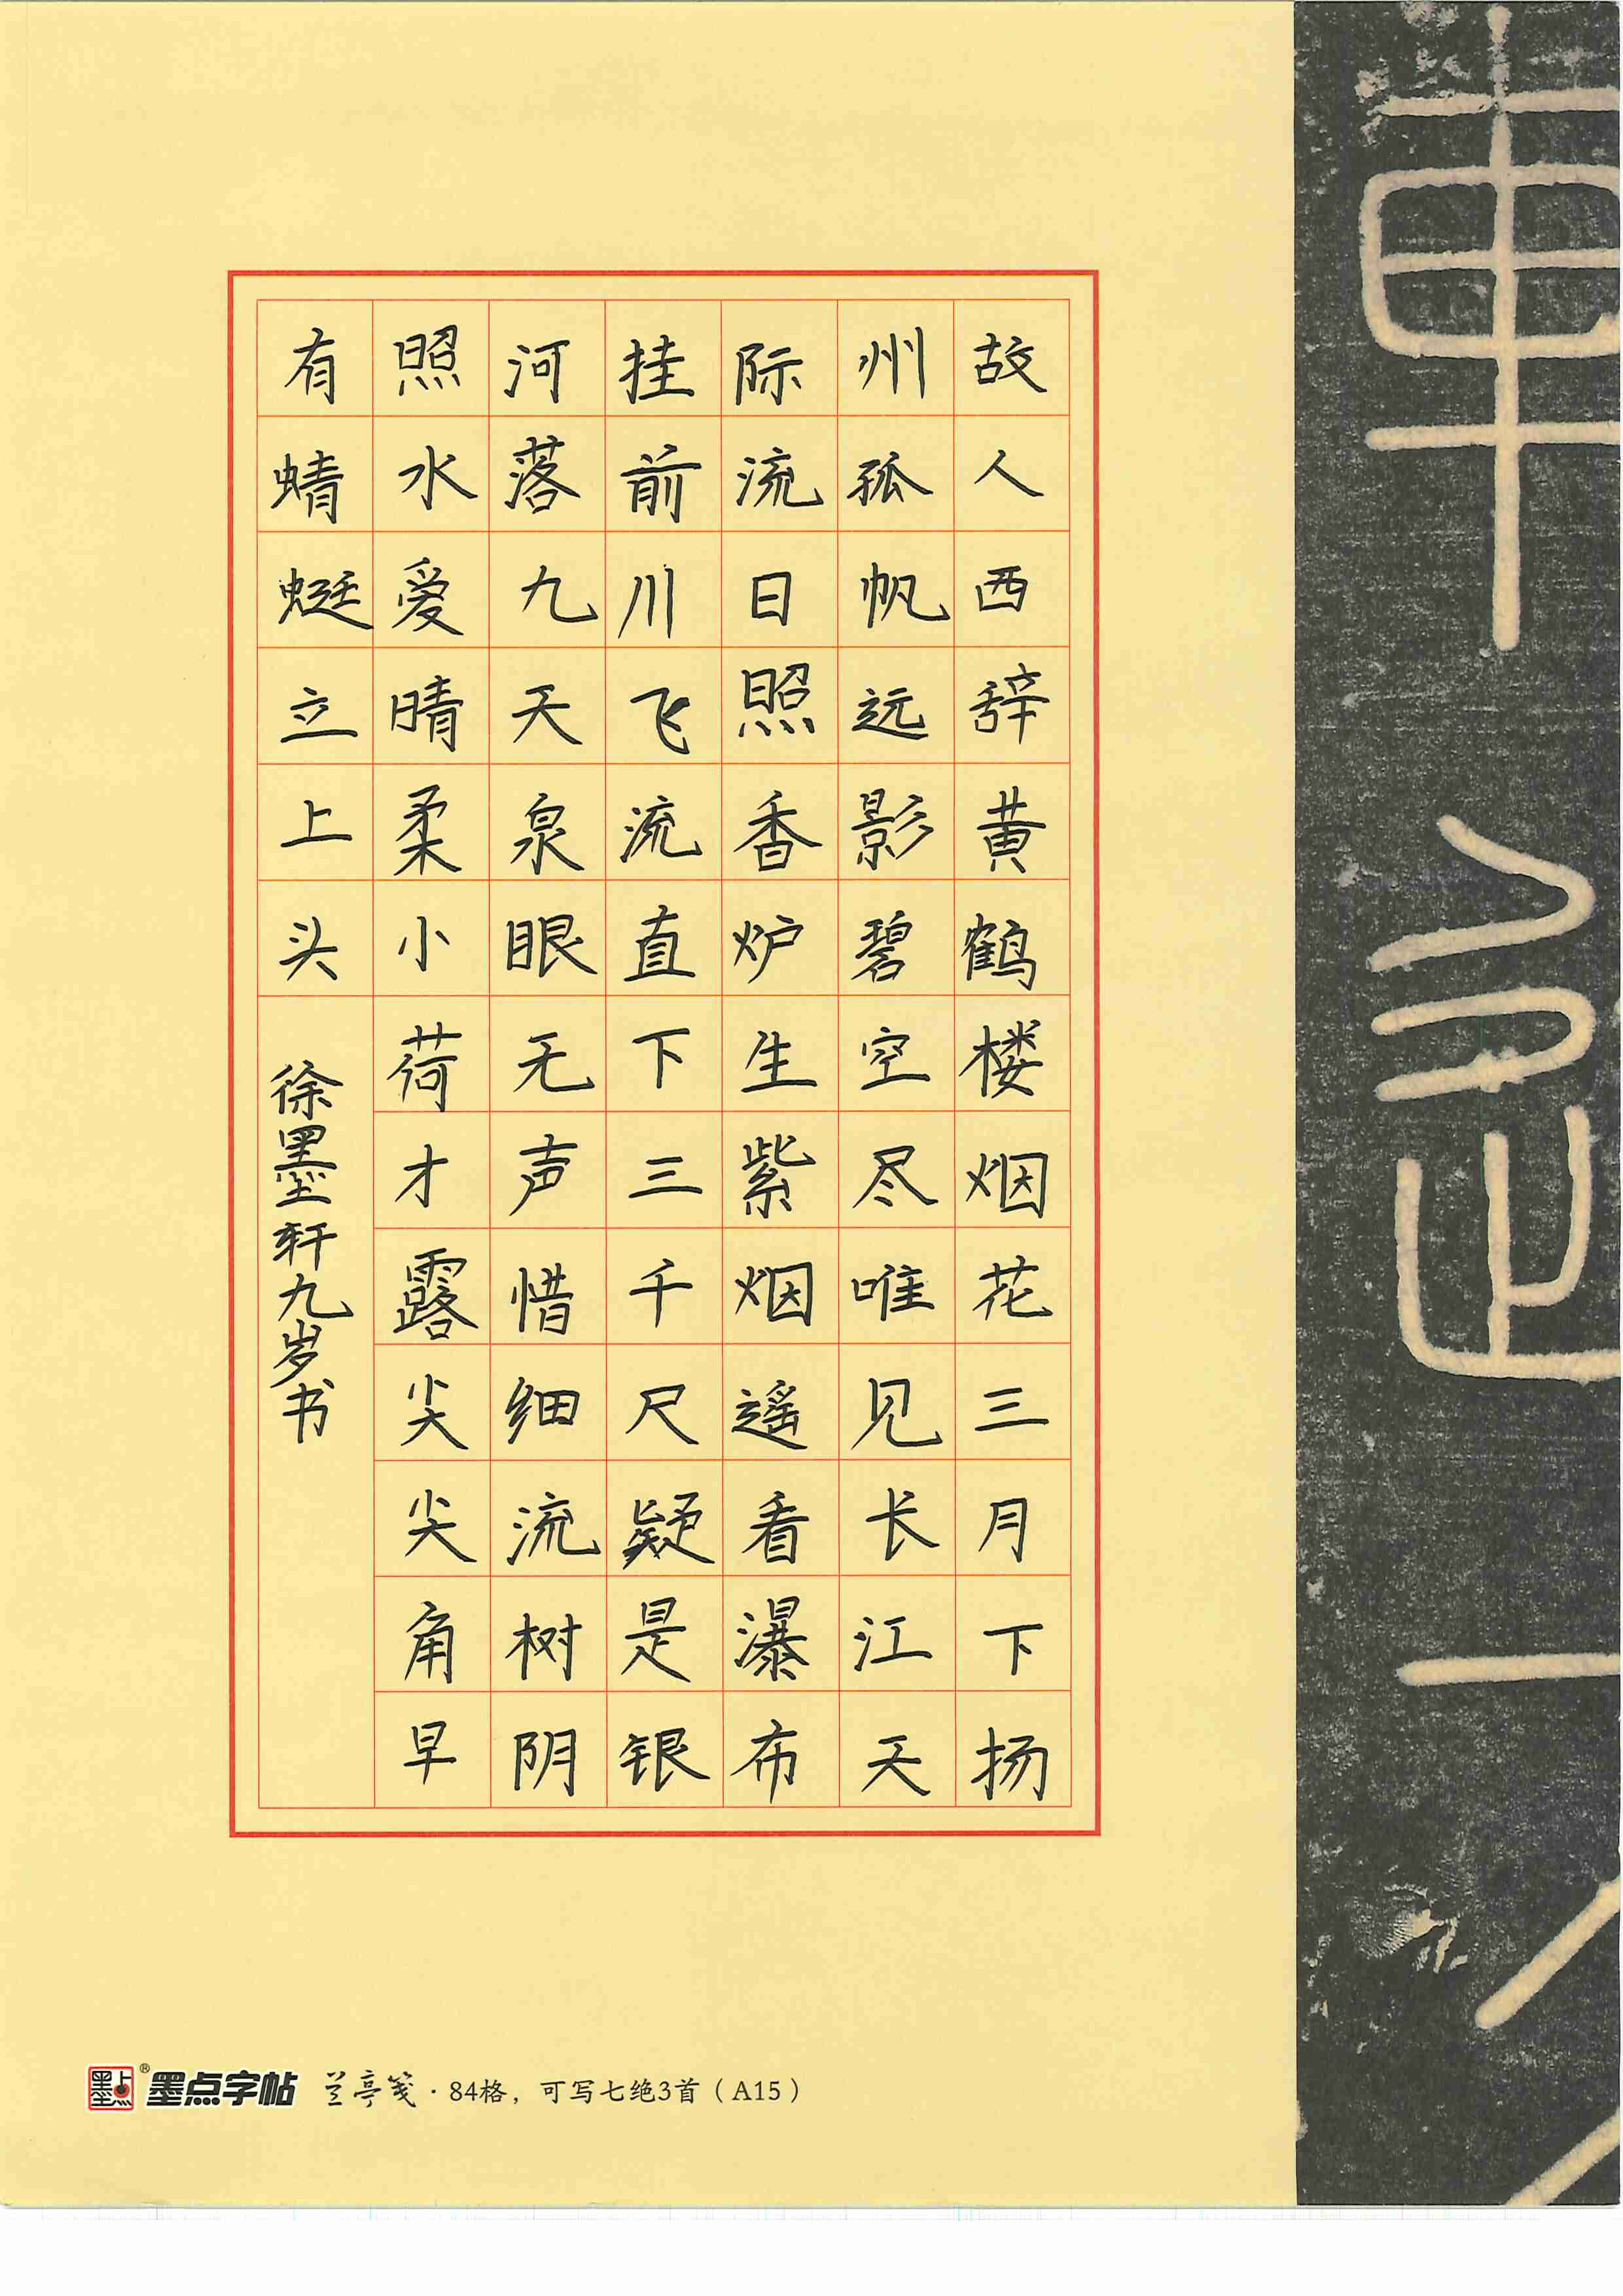 故人西辞黄鹤楼烟花三月下扬
州孤帆远影碧空尽唯见长江天
际流日照香炉生紫烟遥看瀑布
挂前川飞流直下三千尺疑是银
河落九天泉眼无声惜细流树阴
照水爱晴柔小荷才露尖尖角早
有蜻蜓立上头
徐墨轩九岁书
墨点字帖 兰亭笺·84格，可写七绝3首（A15）